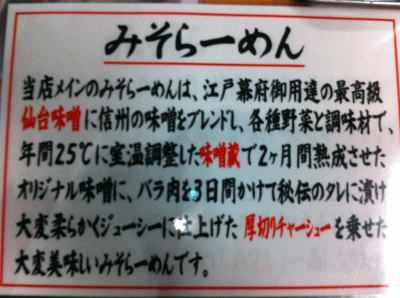 みそらーめん
当店メインのみそらーめんは、江戸幕府御用達の最高級
仙台味噌に信州の味噌をブレンドし、各種野菜と調味材で、
年間25℃に室温調整した味噌蔵で2ヶ月間熟成させた
オリジナル味噌に、バラ肉を3日間かけて秘伝のタレに漬け
大変柔らかくジューシーに仕上げた厚切りチャーシューを乗せた
大変美味しいみそらーめんです。